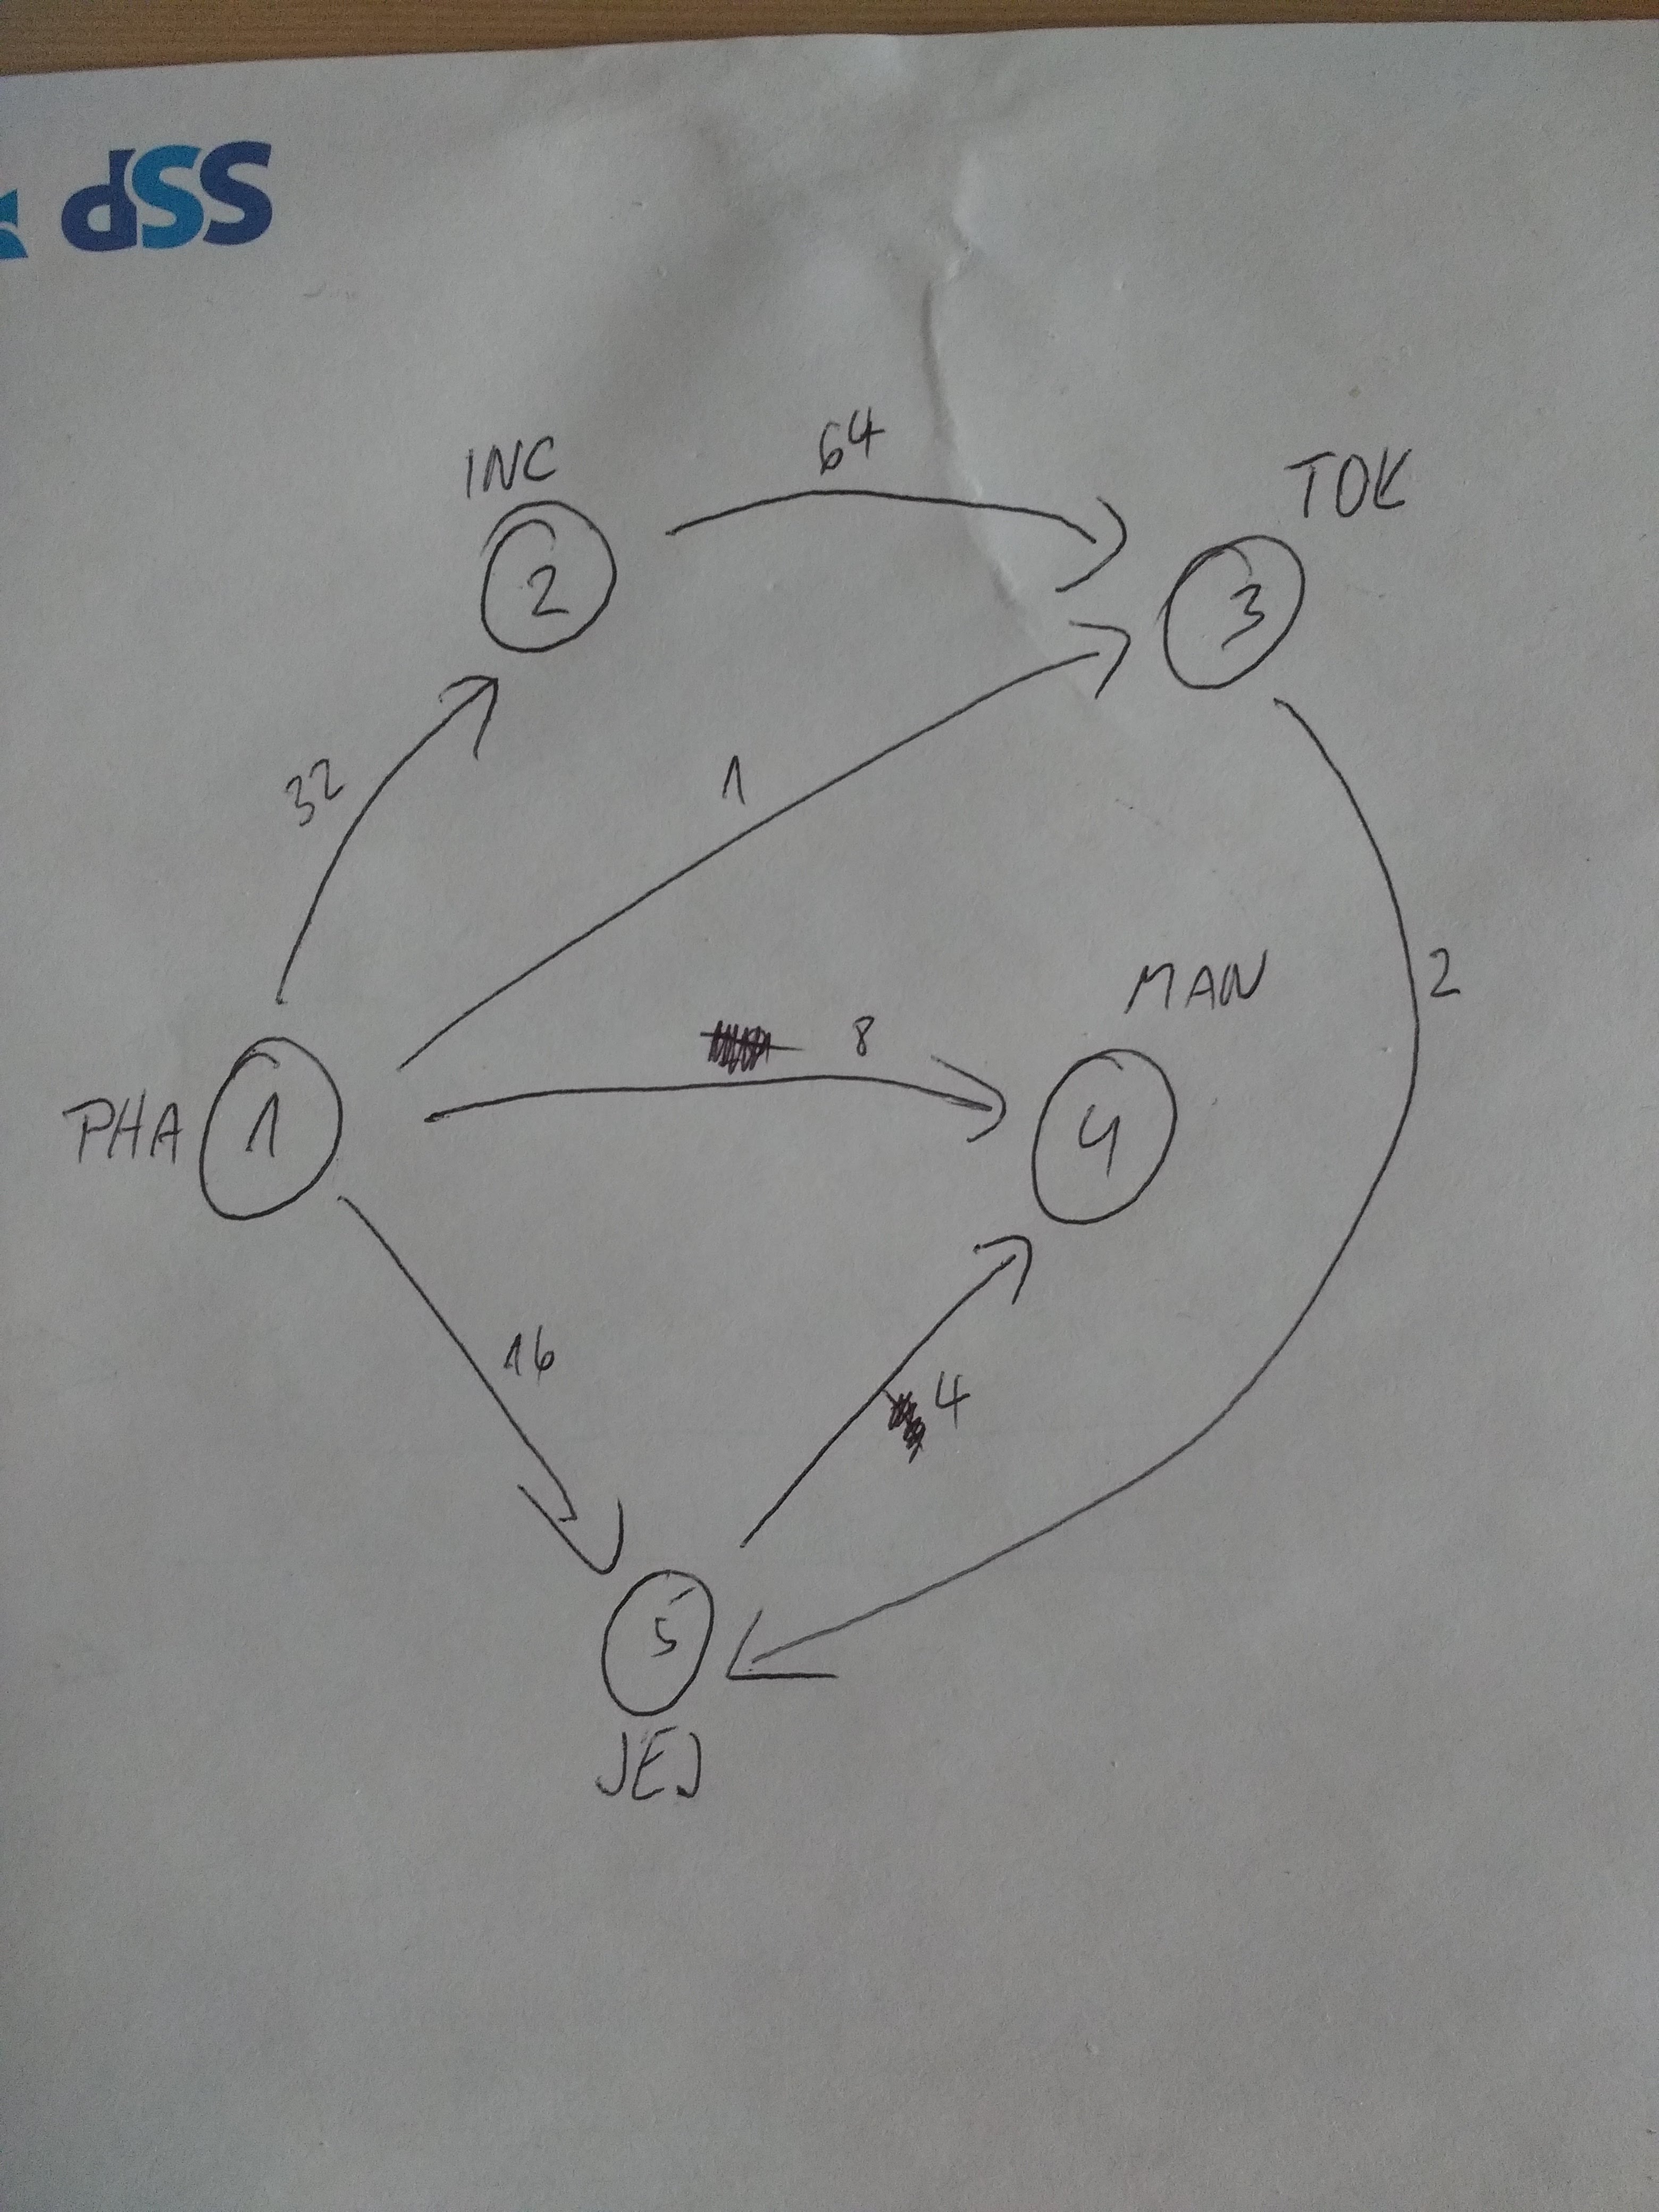 dSS
INC
64
TOK
2
3
32
1
MAN
2
8
PHA
1
4
16
4
5
JEJ